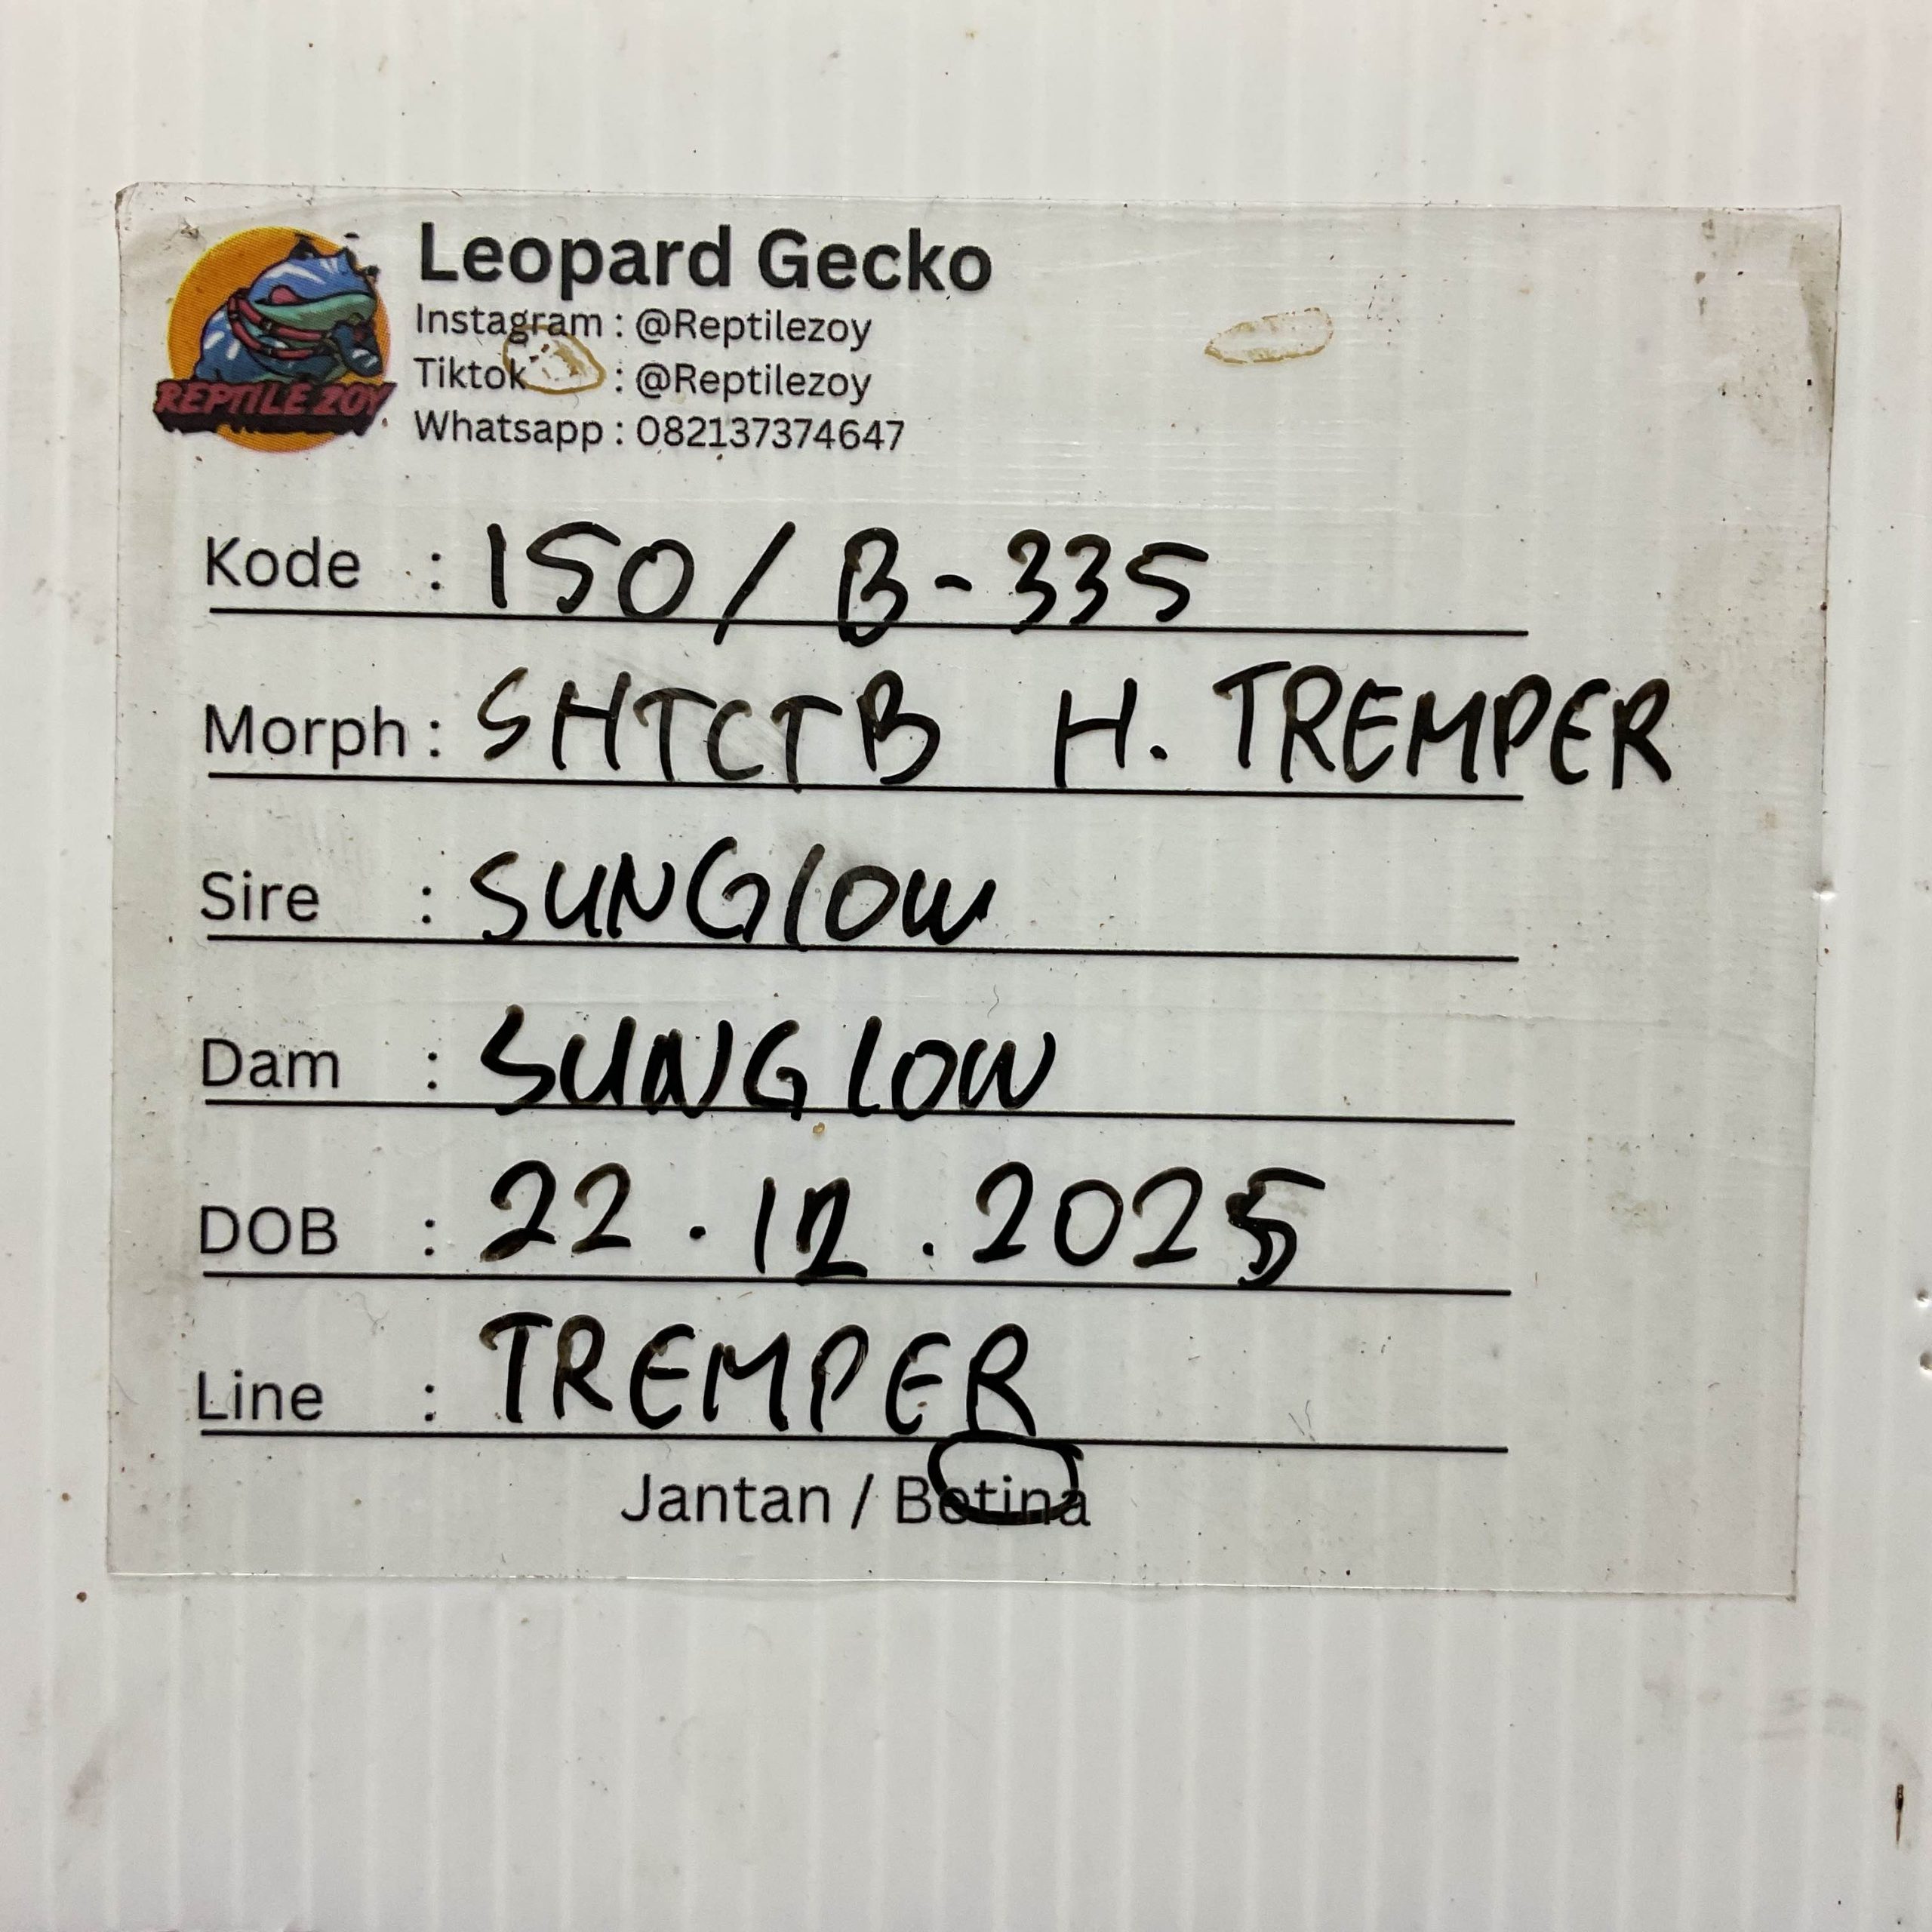 REPTILE ZOY
Leopard Gecko
Instagram : @Reptilezoy
Tiktok : @Reptilezoy
Whatsapp : 082137374647
Kode : 150/B-335
Morph : SHTCTB H. TREMPER
Sire : SUNGlOW
Dam : SUNGlOW
DOB : 22.12.2025
Line : TREMPER
Jantan / Betina